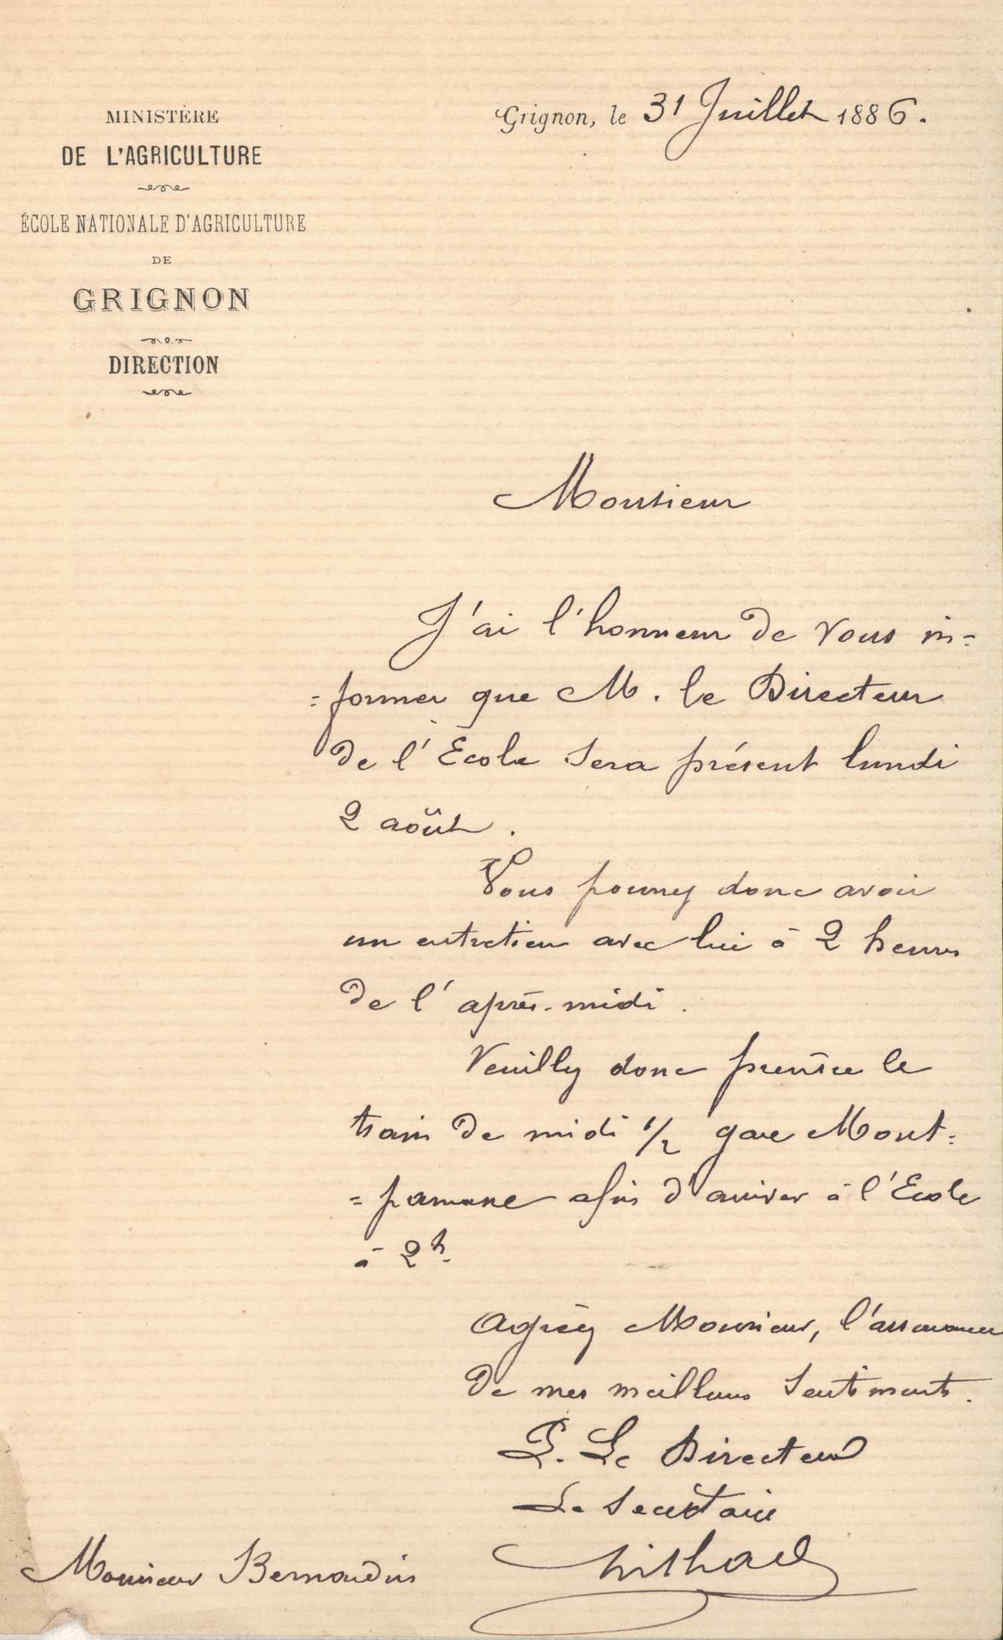 MINISTÈRE
DE L'AGRICULTURE
ÉCOLE NATIONALE D'AGRICULTURE
DE
GRIGNON
DIRECTION
Grignon, le 31 Juillet 1886.
Monsieur
J'ai l'honneur de vous in=
=former que M. le Directeur
de l'École sera présent lundi
2 août.
Vous pouvez donc avoir
un entretien avec lui à 2 heures
de l'après-midi.
Veuillez donc prendre le
train de midi 1/2 gare Mont=
=parnasse afin d'arriver à l'École
à 2h.
Agréez Monsieur, l'assurance
de mes meilleurs sentiments.
P. Le Directeur
Le Secrétaire
Monsieur Bernardin